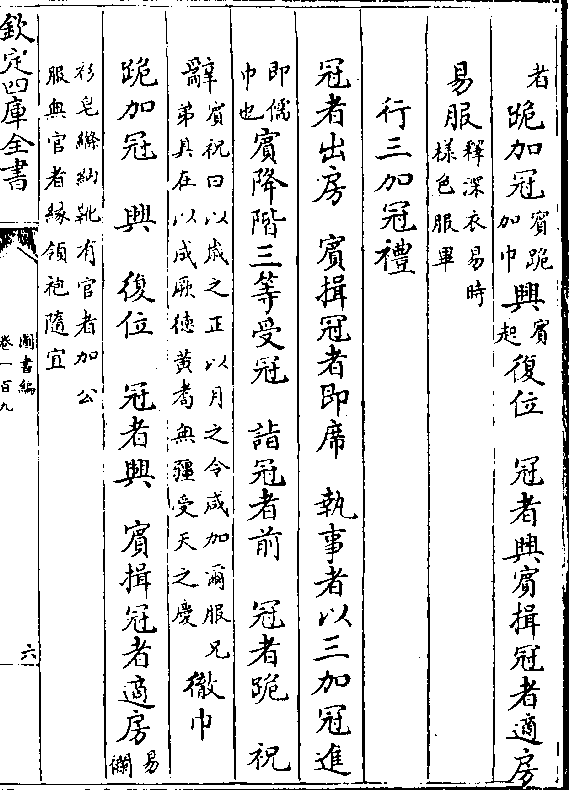 者跪加冠賓跪加巾興賓起復位　冠者興賓揖冠者適房
易服釋深衣易時様色服畢
行三加冠禮
冠者出房　賓揖冠者即席　執事者以三加冠進
即儒巾也賓降階三等受冠　詣冠者前　冠者跪　祝
辭賓祝曰以歲之正以月之令咸加爾服兄弟具在以成厥德黃耉無疆受天之慶徹巾
跪加冠　興　復位　冠者興　賓揖冠者適房易襴
衫皂縧納靴有官者加公服無官者緣領袍隨宜
欽定四庫全書
圖書編
卷一百九
六